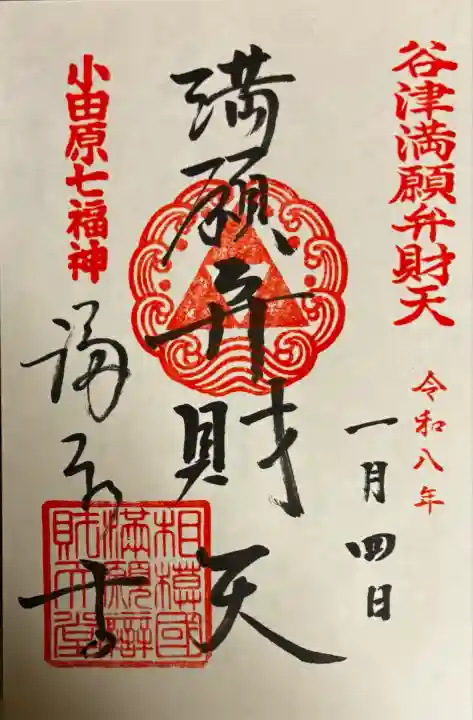 谷津満願弁財天
令和八年
一月四日
満願弁財天
小田原七福神
福泉寺
相模國
滿願辯
財天堂